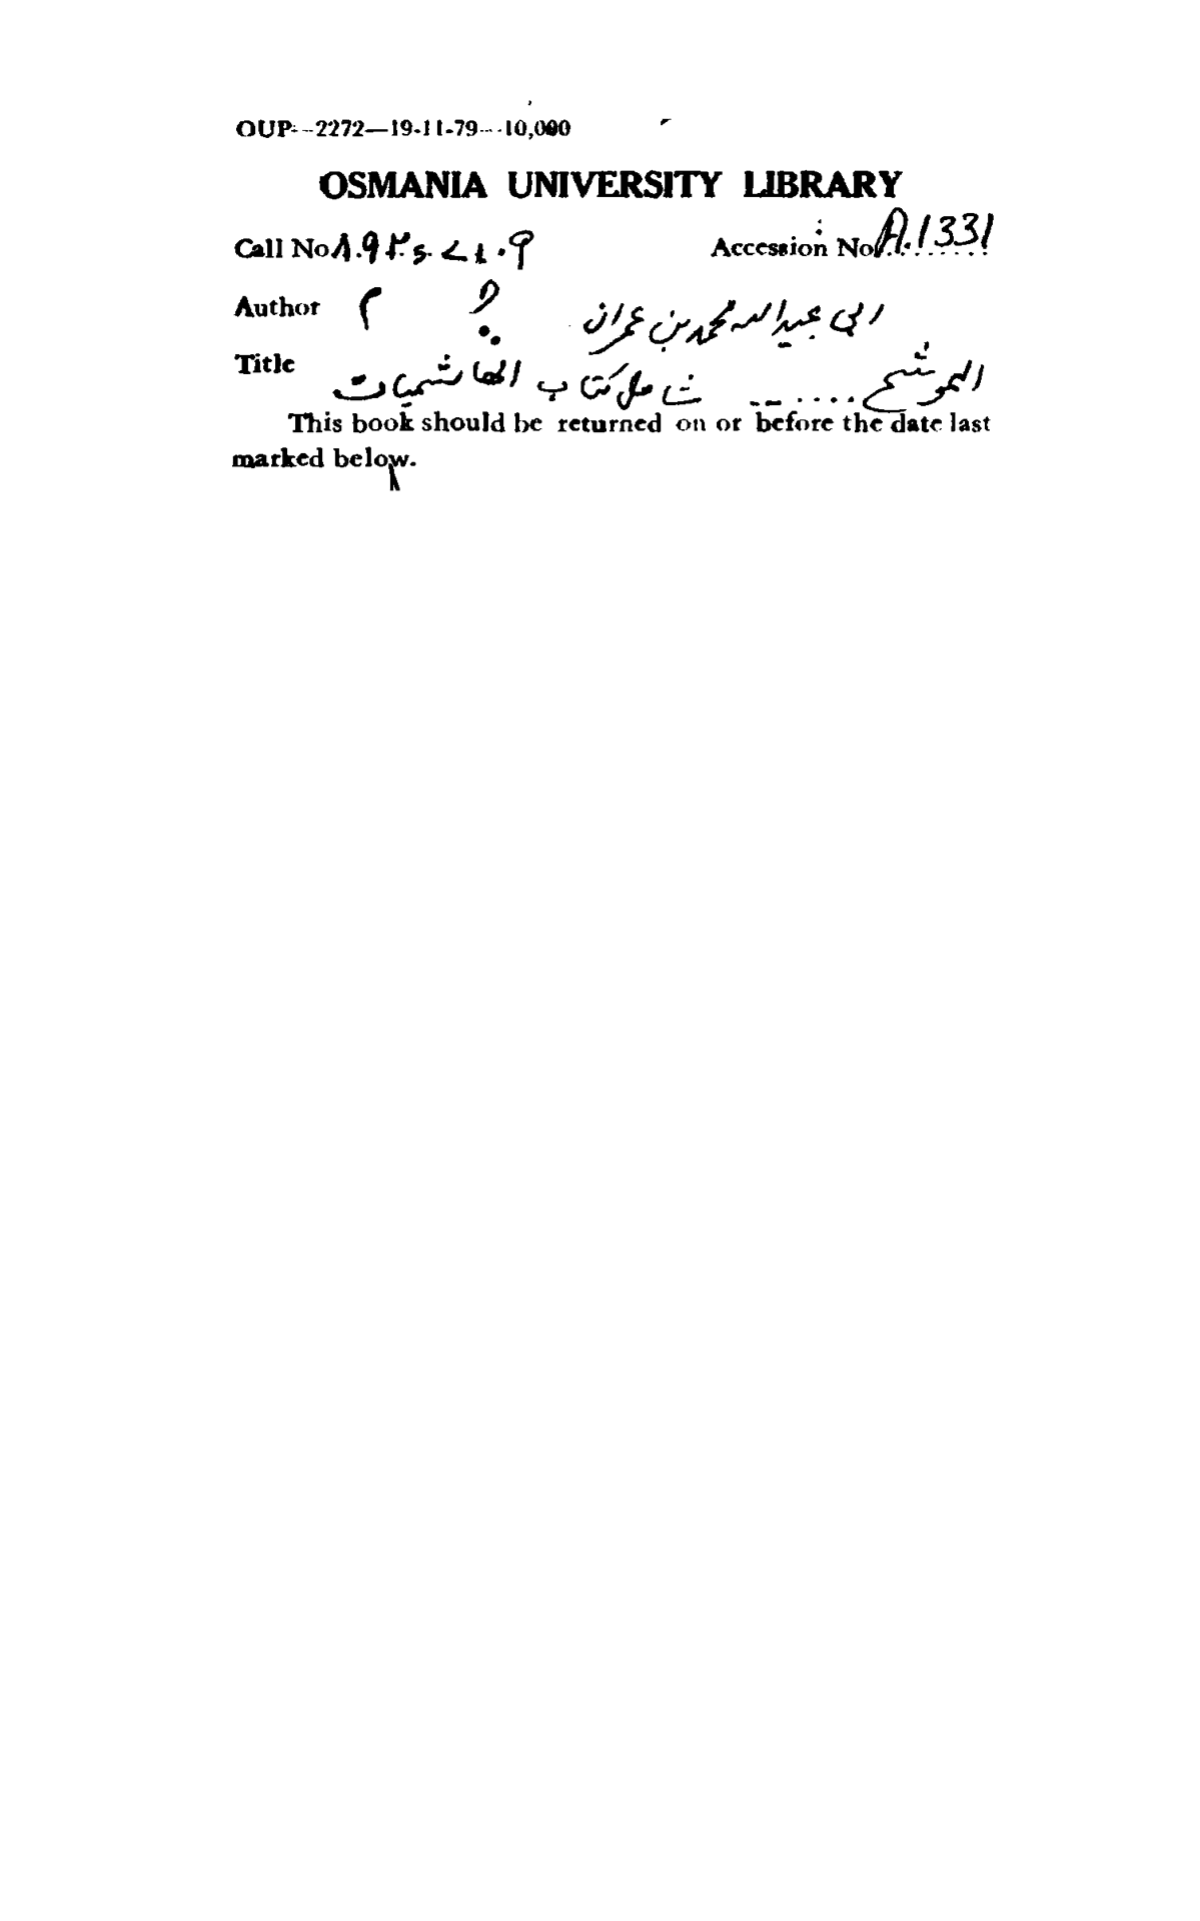 OUP—2272—19-11-79—10,000
OSMANIA UNIVERSITY LIBRARY
Call No. ٨٩٢٥٧١٠٩ Accession No. A.1331
Author م ابی عبید اللہ محمد بن عمران
Title الموشح ..... شامل کتاب الھاشمیات
This book should be returned on or before the date last
marked below.